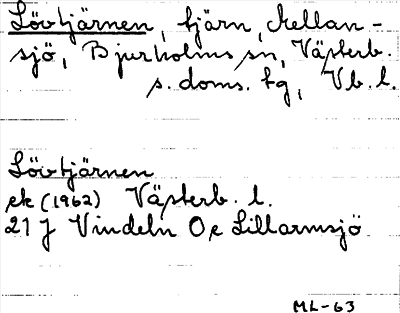 Lövtjärnen, tjärn, Mellan-
sjö, Bjurholms sn, Västerb.
s. doms. hg, Vb. l.
Lövtjärnen
ek (1962) Västerb. l.
21 J Vindeln Oe Lillarmsjö
ML-63